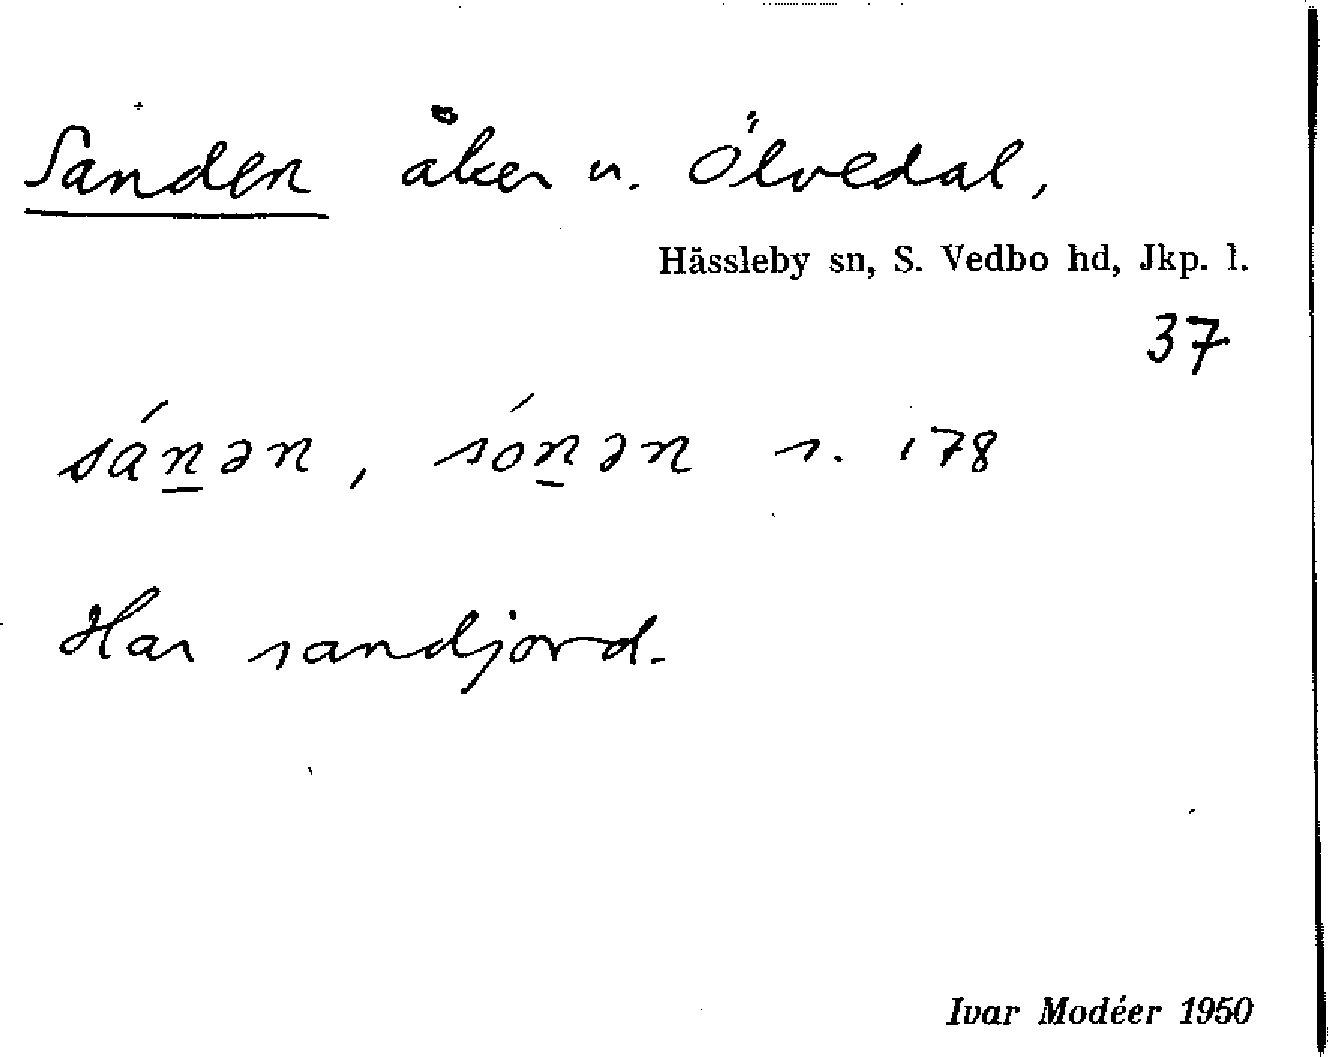 Sanden åker u. Ölvedal,
Hässleby sn, S. Vedbo hd, Jkp. l.
37
sán̲ən, són̲ən s. 178
Har sandjord.
Ivar Modéer 1950